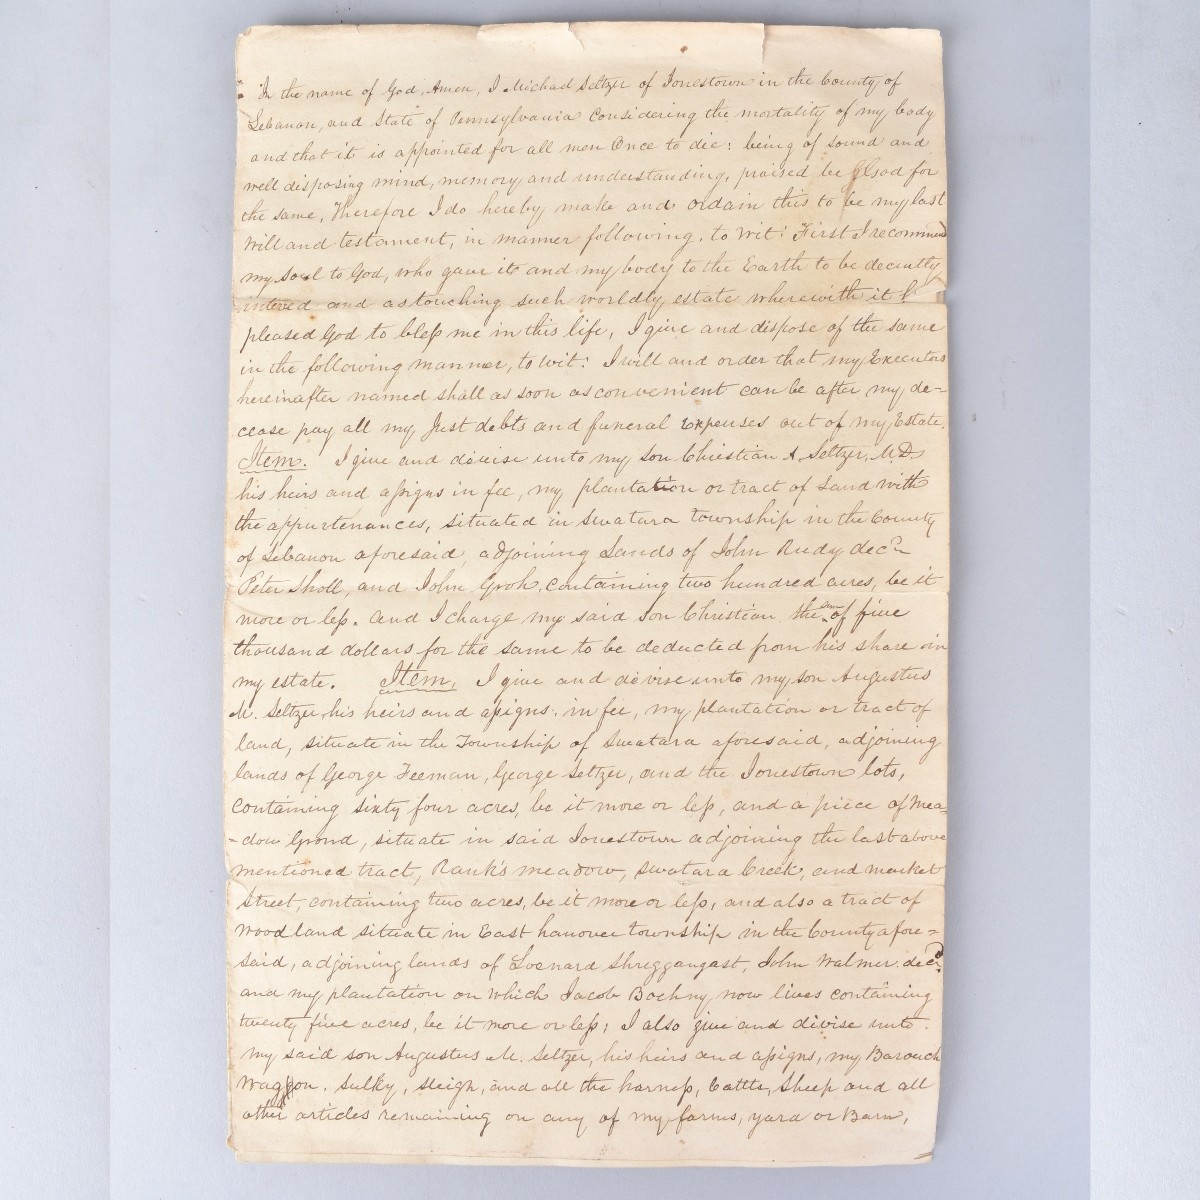 In the name of God, Amen, I Michael Seltzer of Jonestown in the County of
Lebanon, and State of Pennsylvania Considering the mortality of my body
and that it is appointed for all men Once to die: being of sound and
well disposing mind, memory and understanding, praised be God for
the same, Therefore I do hereby make and ordain this to be my last
Will and testament, in manner following, to wit: First I recommend
my soul to God, who gave it and my body to the Earth to be decently
intered and as touching such worldly estate wherewith it
pleased God to bless me in this life, I give and dispose of the same
in the following manner, to wit: I will and order that my Executors
hereinafter named shall as soon as convenient can be after my de=
cease pay all my Just debts and funeral Expenses out of my Estate.
Item. I give and devise unto my son Christian A. Seltzer, M.D.
his heirs and assigns in fee, my plantation or tract of Land with
the appurtenances, situated in Swatara township in the County
of Lebanon aforesaid, adjoining Lands of John Rudy decd
Peter Sholl, and John Groh, containing two hundred acres, be it
more or less. and I charge my said son Christian the sum of five
thousand dollars for the same to be deducted from his share in
my estate. Item, I give and devise unto my son Augustus
M. Seltzer, his heirs and assigns, in fee, my plantation or tract of
land, situate in the Township of Swatara aforesaid, adjoining
lands of George Feeman, George Seltzer, and the Jonestown lots,
containing sixty four acres, be it more or less, and a piece of Mea=
-dow Grond, situate in said Jonestown adjoining the last above
mentioned tract, Rank's meadow, Swatara Creek, and market
Street, containing two acres, be it more or less, and also a tract of
Woodland situate in East hanover township in the County afore=
said, adjoining lands of John Walmer decd
and my plantation on which Jacob now lives containing
twenty five acres, be it more or less; I also give and devise unto
my said son Augustus M. Seltzer, his heirs and assigns, my Barouch
Waggon, Sulky, sleigh, and all the harness, Cattle, Sheep and all
other articles remaining on any of my farms, yard or Barn,